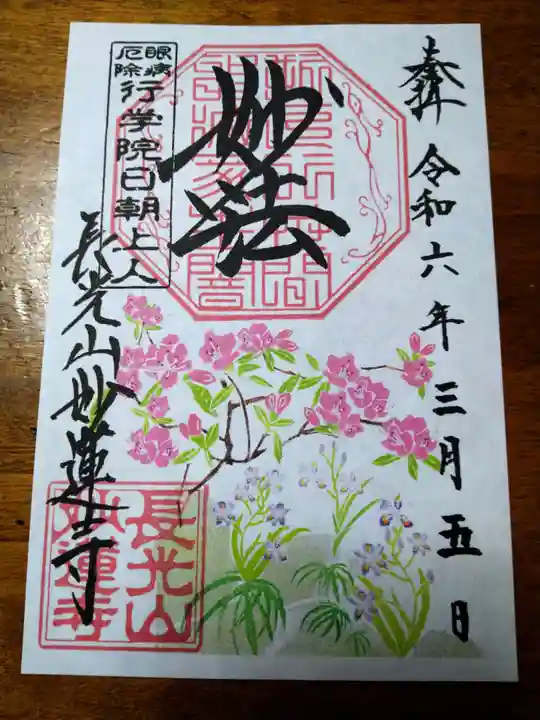 奉拝 令和六年三月五日
妙法
眼病
厄除
行学院日朝上人
長光山妙蓮寺
長光山
妙蓮寺